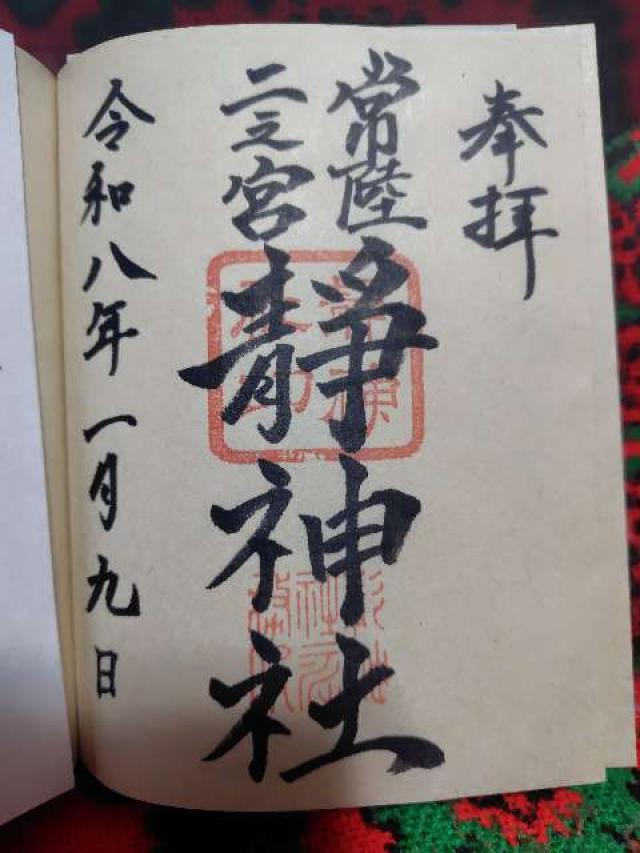 奉拝
常陸
二之宮
靜神社
令和八年一月九日